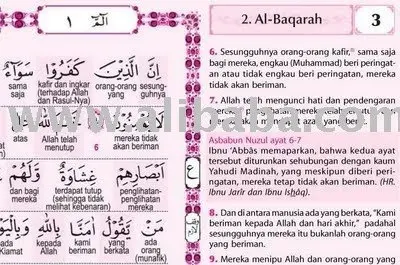 الٓمّٓ ١
اِنَّ الَّذِيْنَ كَفَرُوْا سَوَآءٌ
sama kafir dan ingkar orang-orang sesung-
saja (terhadap Allah yang guhnya
dan Rasul-Nya)
atas Allah telah 6 mereka tidak
menutup akan beriman
اَبْصَارِهِمْ غِشَاوَةٌ وَّلَهُمْ
dan bagi terdapat tutup penglihatan-
mereka (sehingga tidak penglihatan
melihat kebenaran) mereka
مَنْ يَّقُوْلُ اٰمَنَّا بِاللّٰهِ وَبِالْيَوْمِ
kepada kami berkata ada
Kiamat Allah beriman yang orang
(munafik)
ع
2. Al-Baqarah
3
6. Sesungguhnya orang-orang kafir, sama saja
bagi mereka, engkau (Muhammad) beri peringat-
an atau tidak engkau beri peringatan, mereka
tidak akan beriman.
7. Allah telah mengunci hati dan pendengaran
mereka, akan mendapat azab yang berat.
Asbabun Nuzul ayat 6-7
Ibnu 'Abbas memaparkan, bahwa kedua ayat
tersebut diturunkan sehubungan dengan kaum
Yahudi Madinah, yang meskipun diberi peri-
ngatan, mereka tetap tidak akan beriman. (HR.
Ibnu Jarir dan Ibnu Ishaq).
8. Dan di antara manusia ada yang berkata, "Kami
beriman kepada Allah dan hari akhir," padahal
sesungguhnya mereka itu bukanlah orang-orang
yang beriman.
9. Mereka menipu Allah dan orang-orang yang
www.alibaba.com